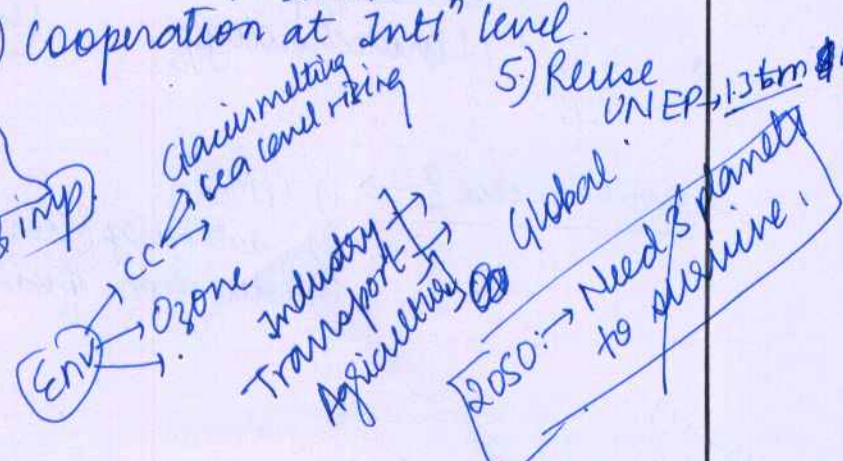 ) Cooperation at Intlⁿ level.
5.) Reuse
UNEP → 1.3 bn
Glacier melting
Sea level rising
imp.
CC
Env
Ozone
Industry
Transport
Agriculture
Global
2050 :→ Need 3 planets
to survive.